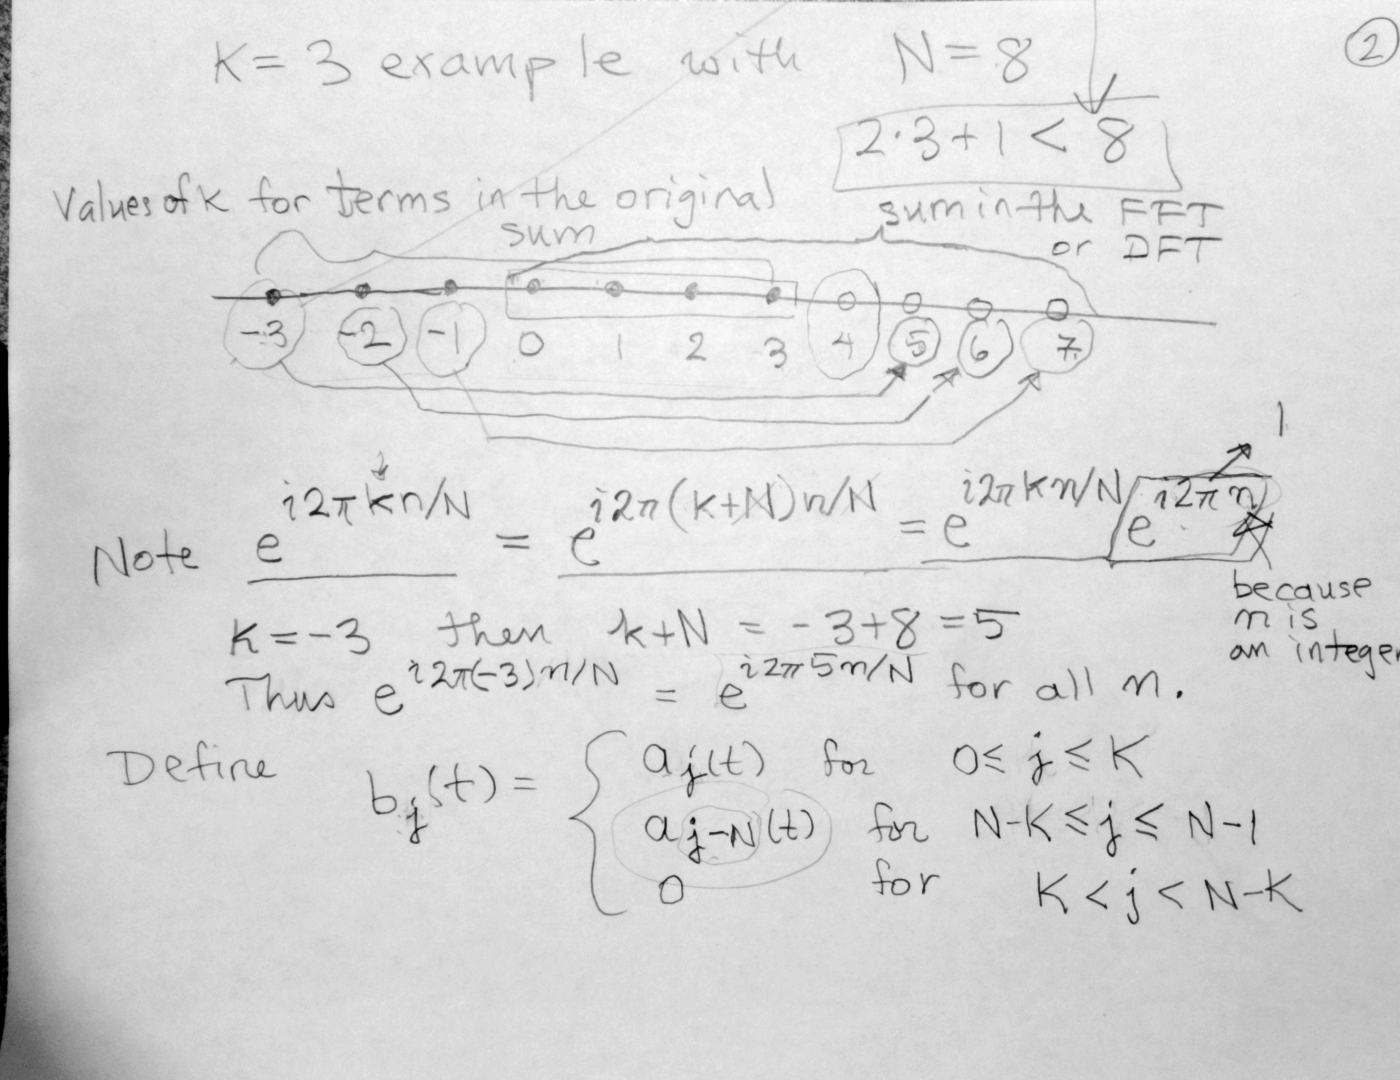 K = 3 example with N = 8
2
2·3+1 < 8
Values of k for terms in the original
sum
sum in the FFT
or DFT
-3 -2 -1 0 1 2 3 4 5 6 7
1
Note e^{i2πkn/N} = e^{i2π(k+N)n/N} = e^{i2πkn/N} e^{i2πn}
because
n is
an integer
K = -3 then k+N = -3+8 = 5
Thus e^{i2π(-3)n/N} = e^{i2π5n/N} for all n.
Define b_j(t) = { a_j(t) for 0 ≤ j ≤ K
a_{j-N}(t) for N-K ≤ j ≤ N-1
0 for K < j < N-K